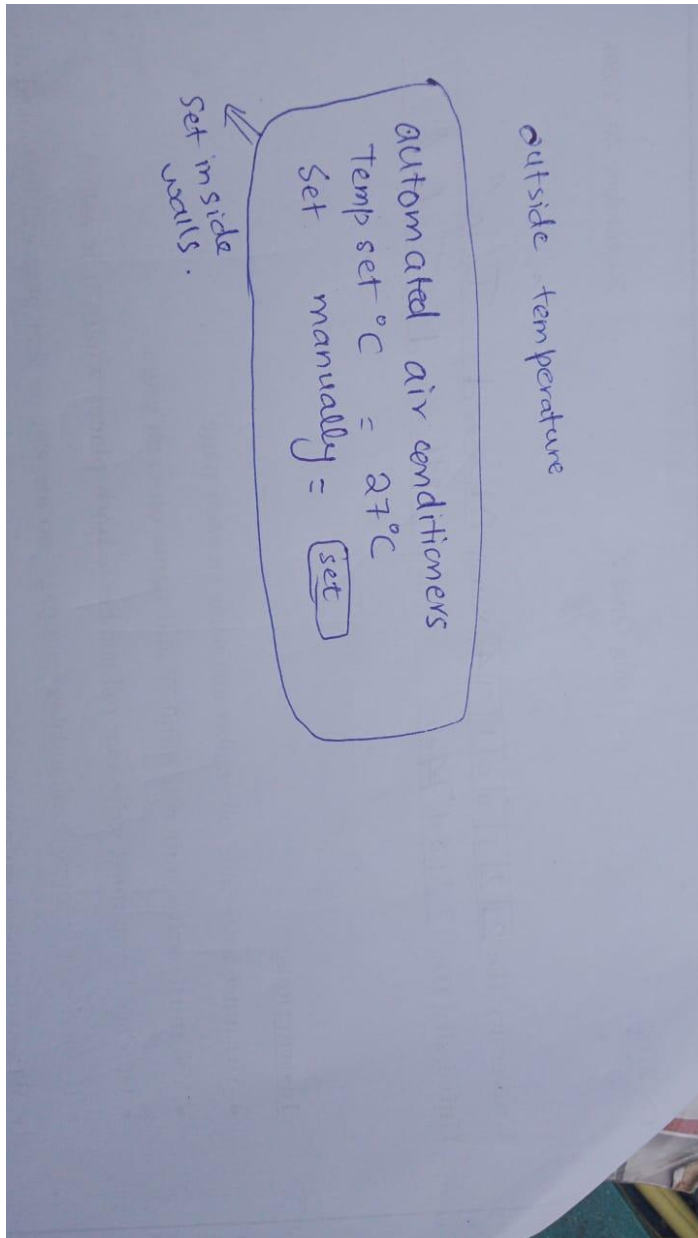 outside temperature
automated air conditioners
Temp set °C = 27°C
Set manually = set
set inside
walls.